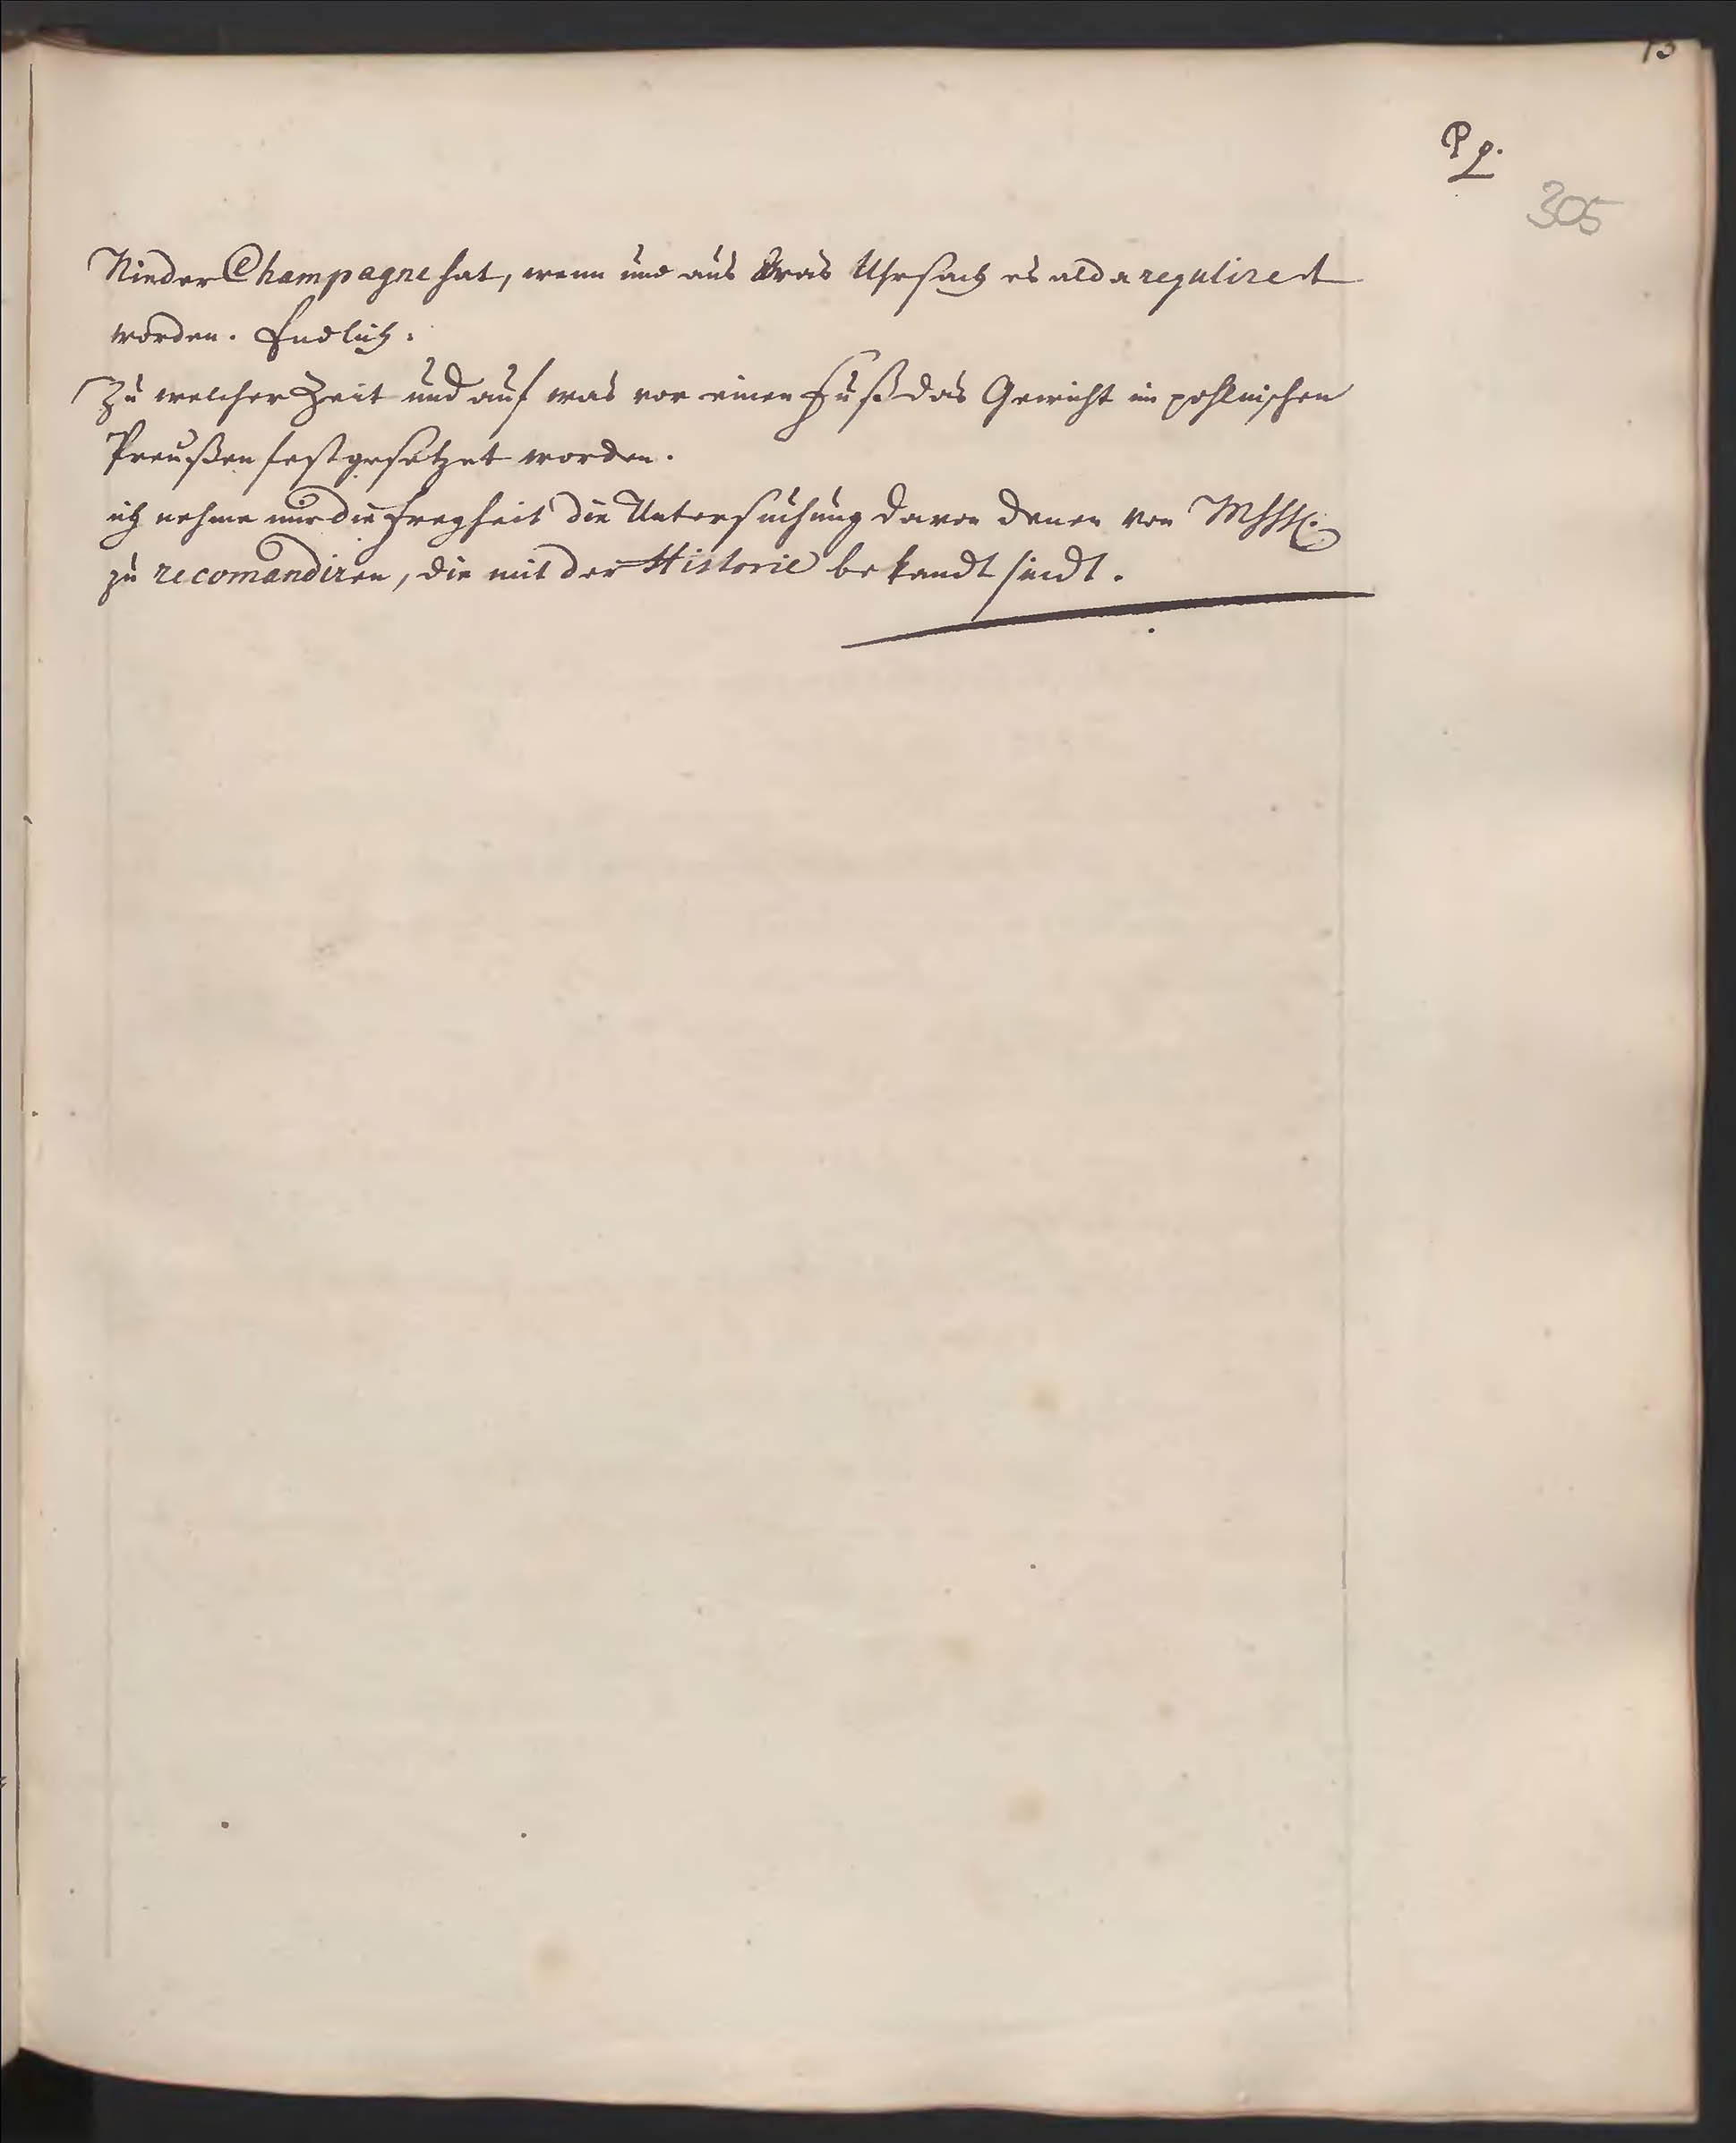 Pg.
305
Nieder Champagne hat, wenn und aus was Uhrsach es alda reguliret
worden. Endlich:
Zu welcher Zeit und auf was vor einen Fuß das Gewicht im pohlnischen
Preußen festgesetzet worden.
ich nehme mir die Freyheit die Untersuchung davon denen von MhhH.
zu recomandiren, die mit der Historie bekandt sindt.